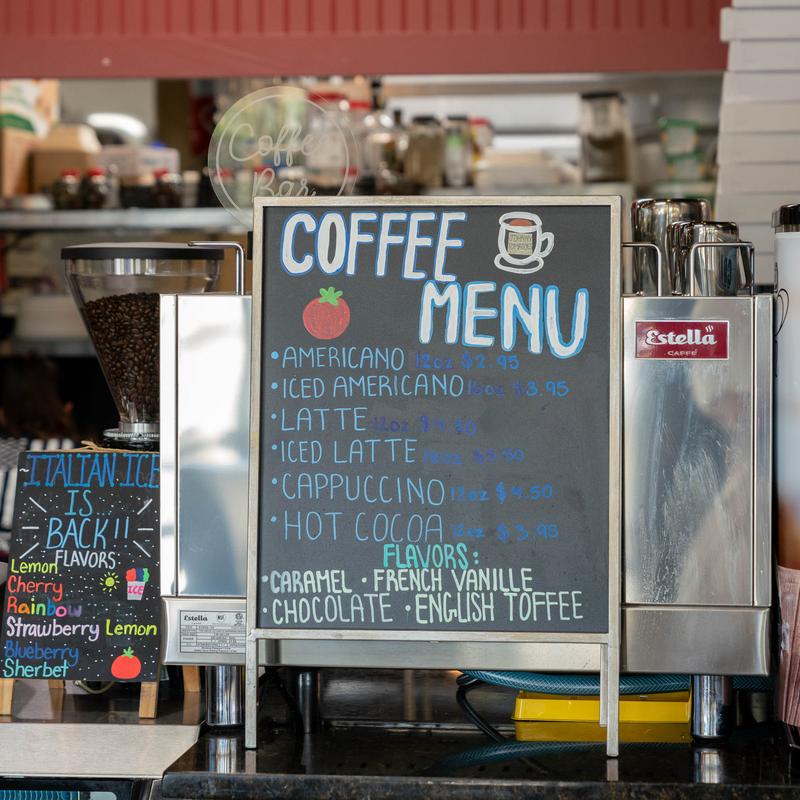 Coffee
Bar
COFFEE
MENU
JOHNNY
TOMATOE
• AMERICANO 12oz $2.95
• ICED AMERICANO 16oz $3.95
• LATTE 12oz $4.50
• ICED LATTE 16oz $5.50
• CAPPUCCINO 12oz $4.50
• HOT COCOA 12oz $3.95
FLAVORS:
• CARAMEL • FRENCH VANILLE
• CHOCOLATE • ENGLISH TOFFEE
Estella
CAFFÉ
~ITALIAN ICE
IS
BACK!!
FLAVORS
Lemon
Cherry
Rainbow
Strawberry Lemon
Blueberry
Sherbet
ICE
Estella